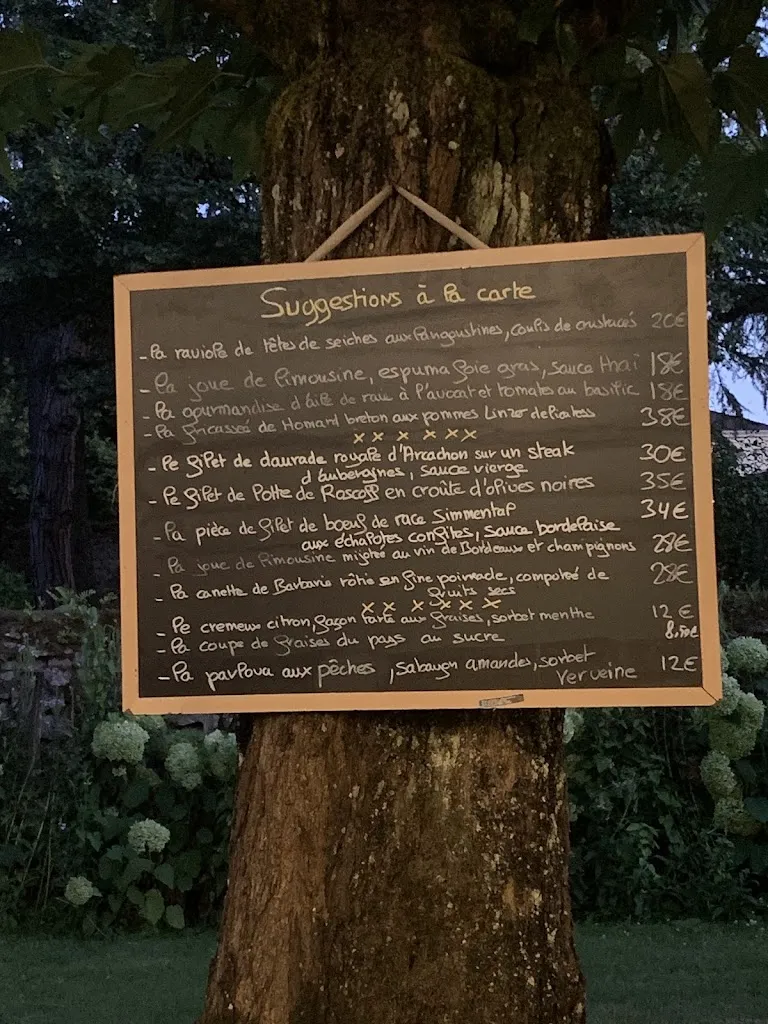 Suggestions à la carte
- La raviole de têtes de seiches aux langoustines, coulis de crustacés 20€
- La joue de limousine, espuma foie gras, sauce thaï 18€
- La gourmandise d'aile de raie à l'avocat et tomates au basilic 18€
- La fricassé de Homard breton aux pommes Linzer delicatess 38€
xx x x xx
- Le filet de daurade royale d'Arcachon sur un steak 30€
d'aubergines, sauce vierge
- Le filet de Lotte de Roscoff en croûte d'olives noires 35€
- La pièce de filet de boeuf de race Simmental 34€
aux échalotes confites, sauce bordelaise
- La joue de limousine mijotée au vin de Bordeaux et champignons 28€
- La canette de Barbarie rôtie en fine poivrade, compotée de 28€
fruits secs
xx x xxx
- Le cremeux citron, façon tarte aux fraises, sorbet menthe 12€
- La coupe de fraises du pays au sucre 8.50€
- La pavlova aux pêches, sabayon amandes, sorbet 12€
Verveine